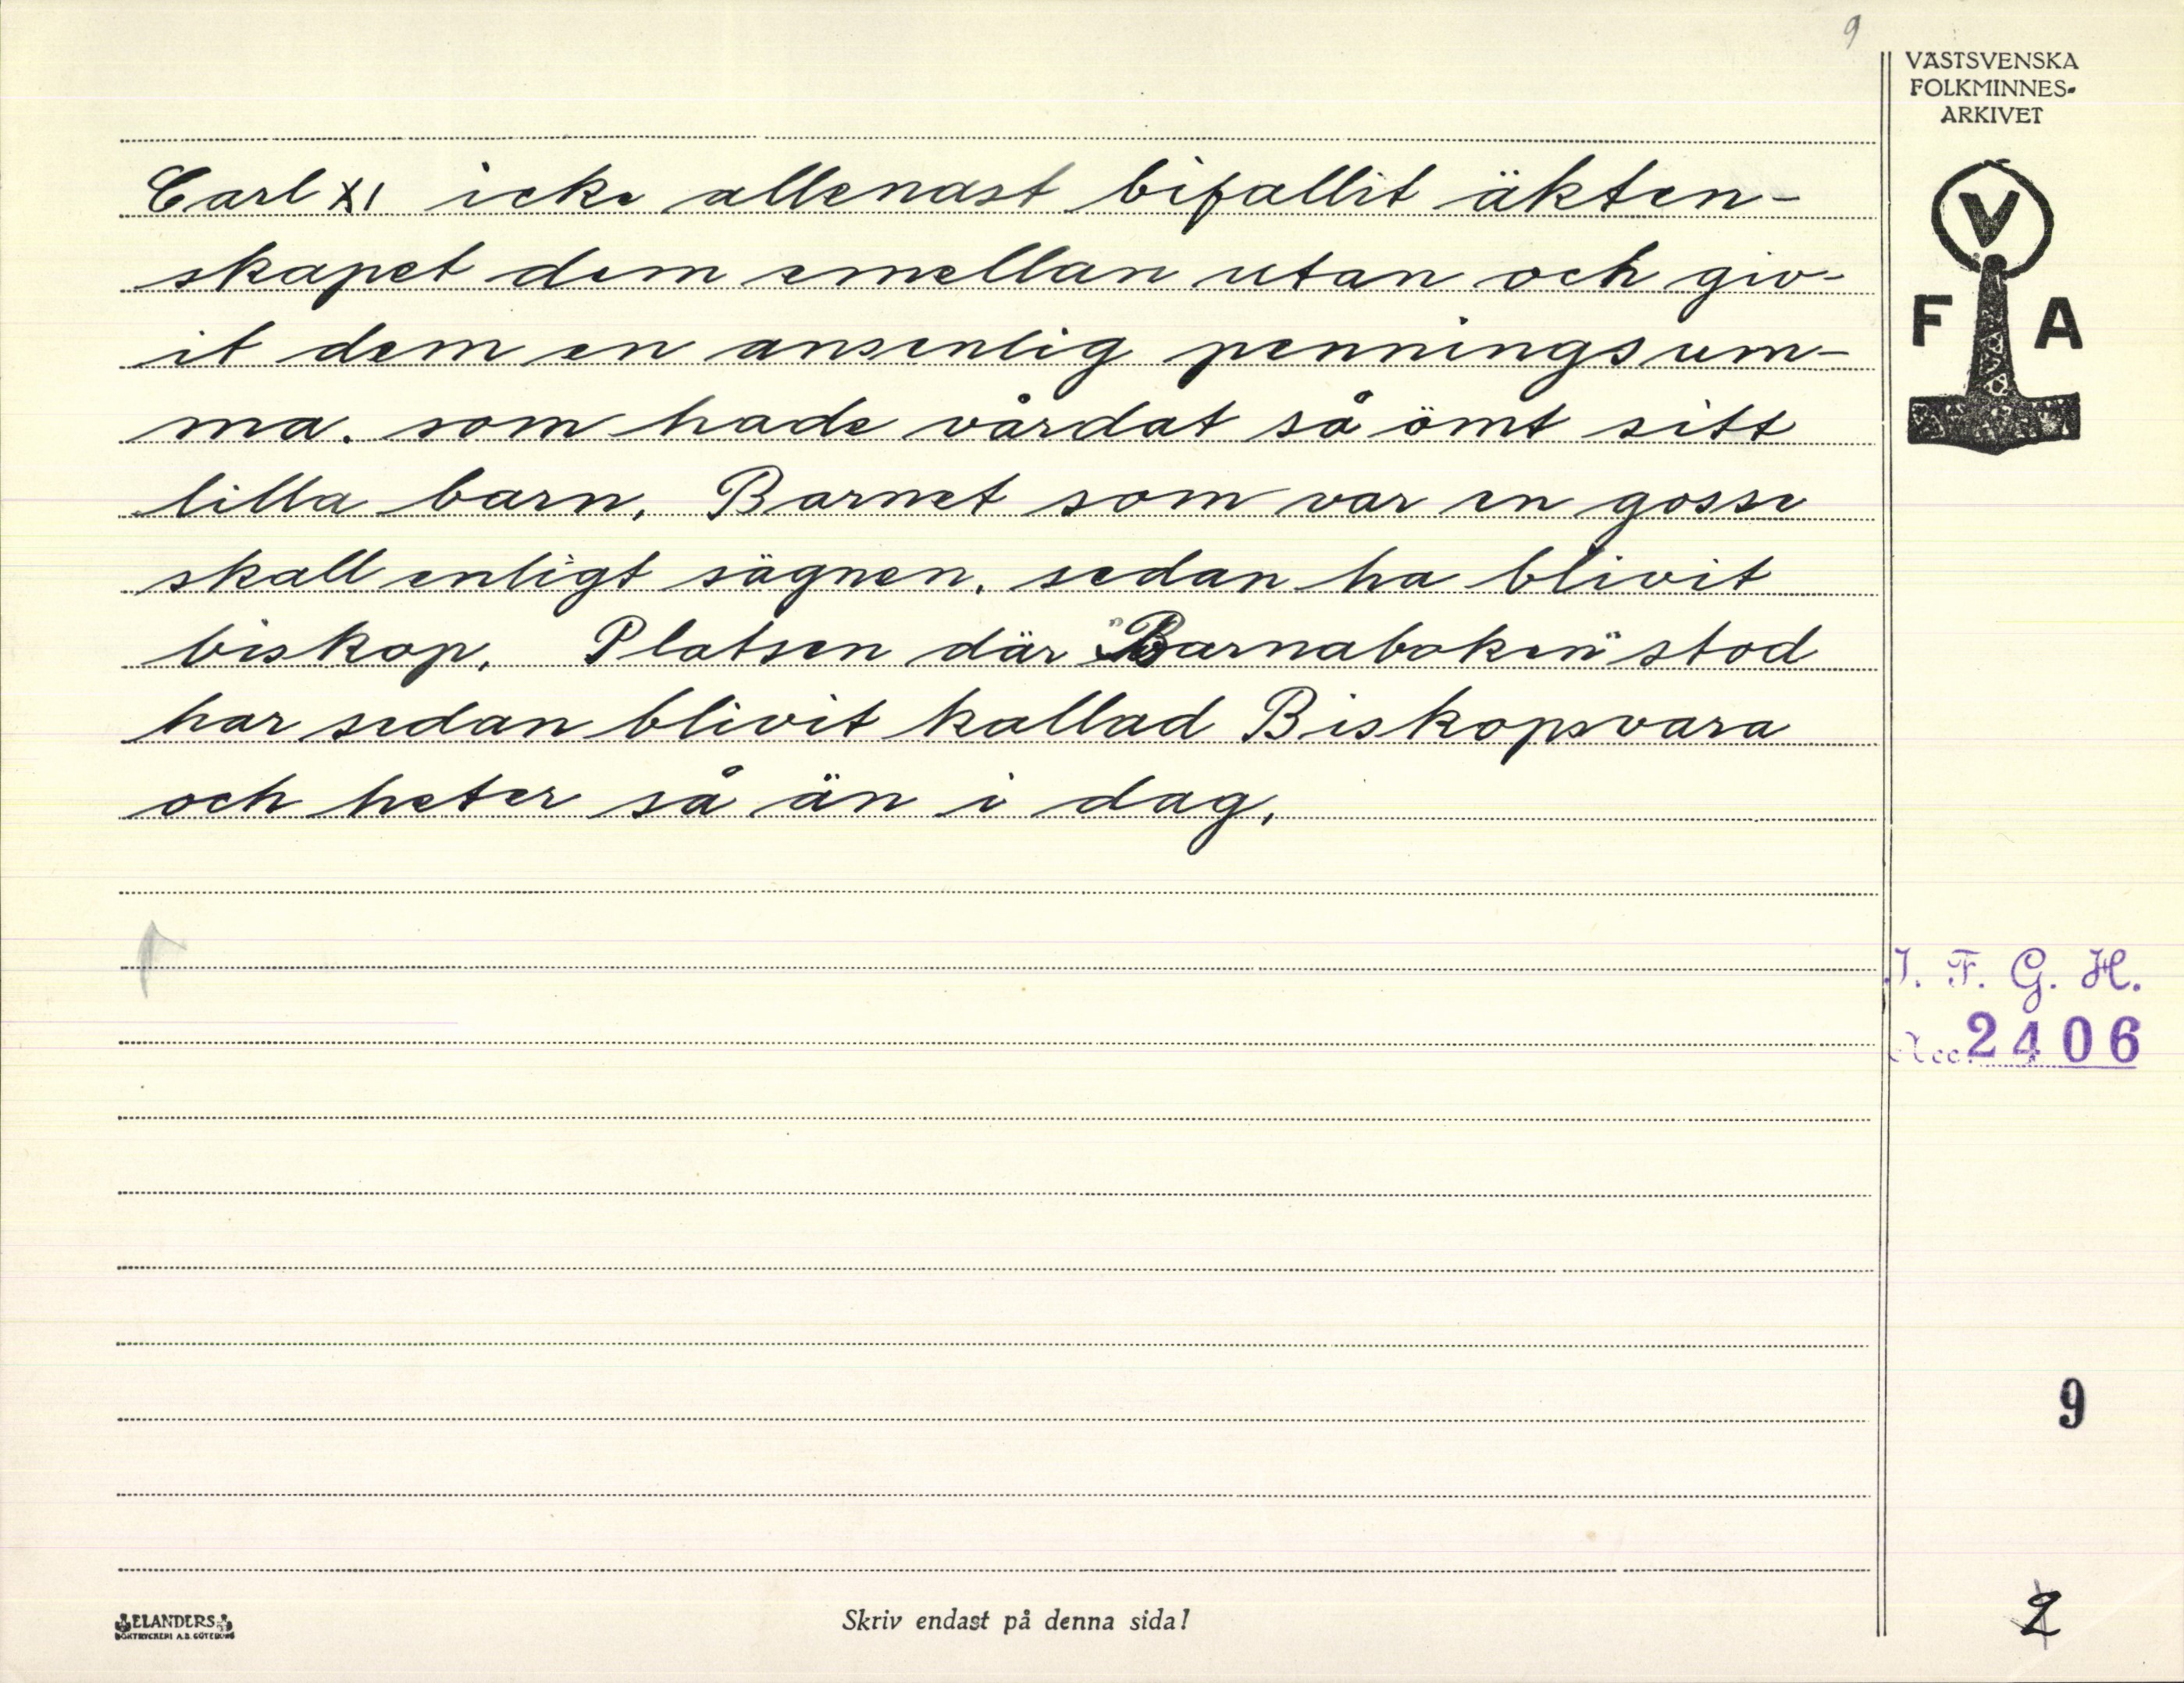 9
VÄSTSVENSKA
FOLKMINNES-
ARKIVET
V
F A
Carl XI icke allenast bifallit äkten-
skapet dem emellan utan och giv-
it dem en ansenlig penningsum-
ma. som hade vårdat så ömt sitt
lilla barn. Barnet som var en gosse
skall enligt sägnen, sedan ha blivit
biskop. Platsen där "Barnaboken" stod
har sedan blivit kallad Biskopsvara
och heter så än i dag.
I. F. G. H.
Acc. 2406
9
2
ELANDERS
BOKTRYCKERI A.B. GÖTEBORG
Skriv endast på denna sida!